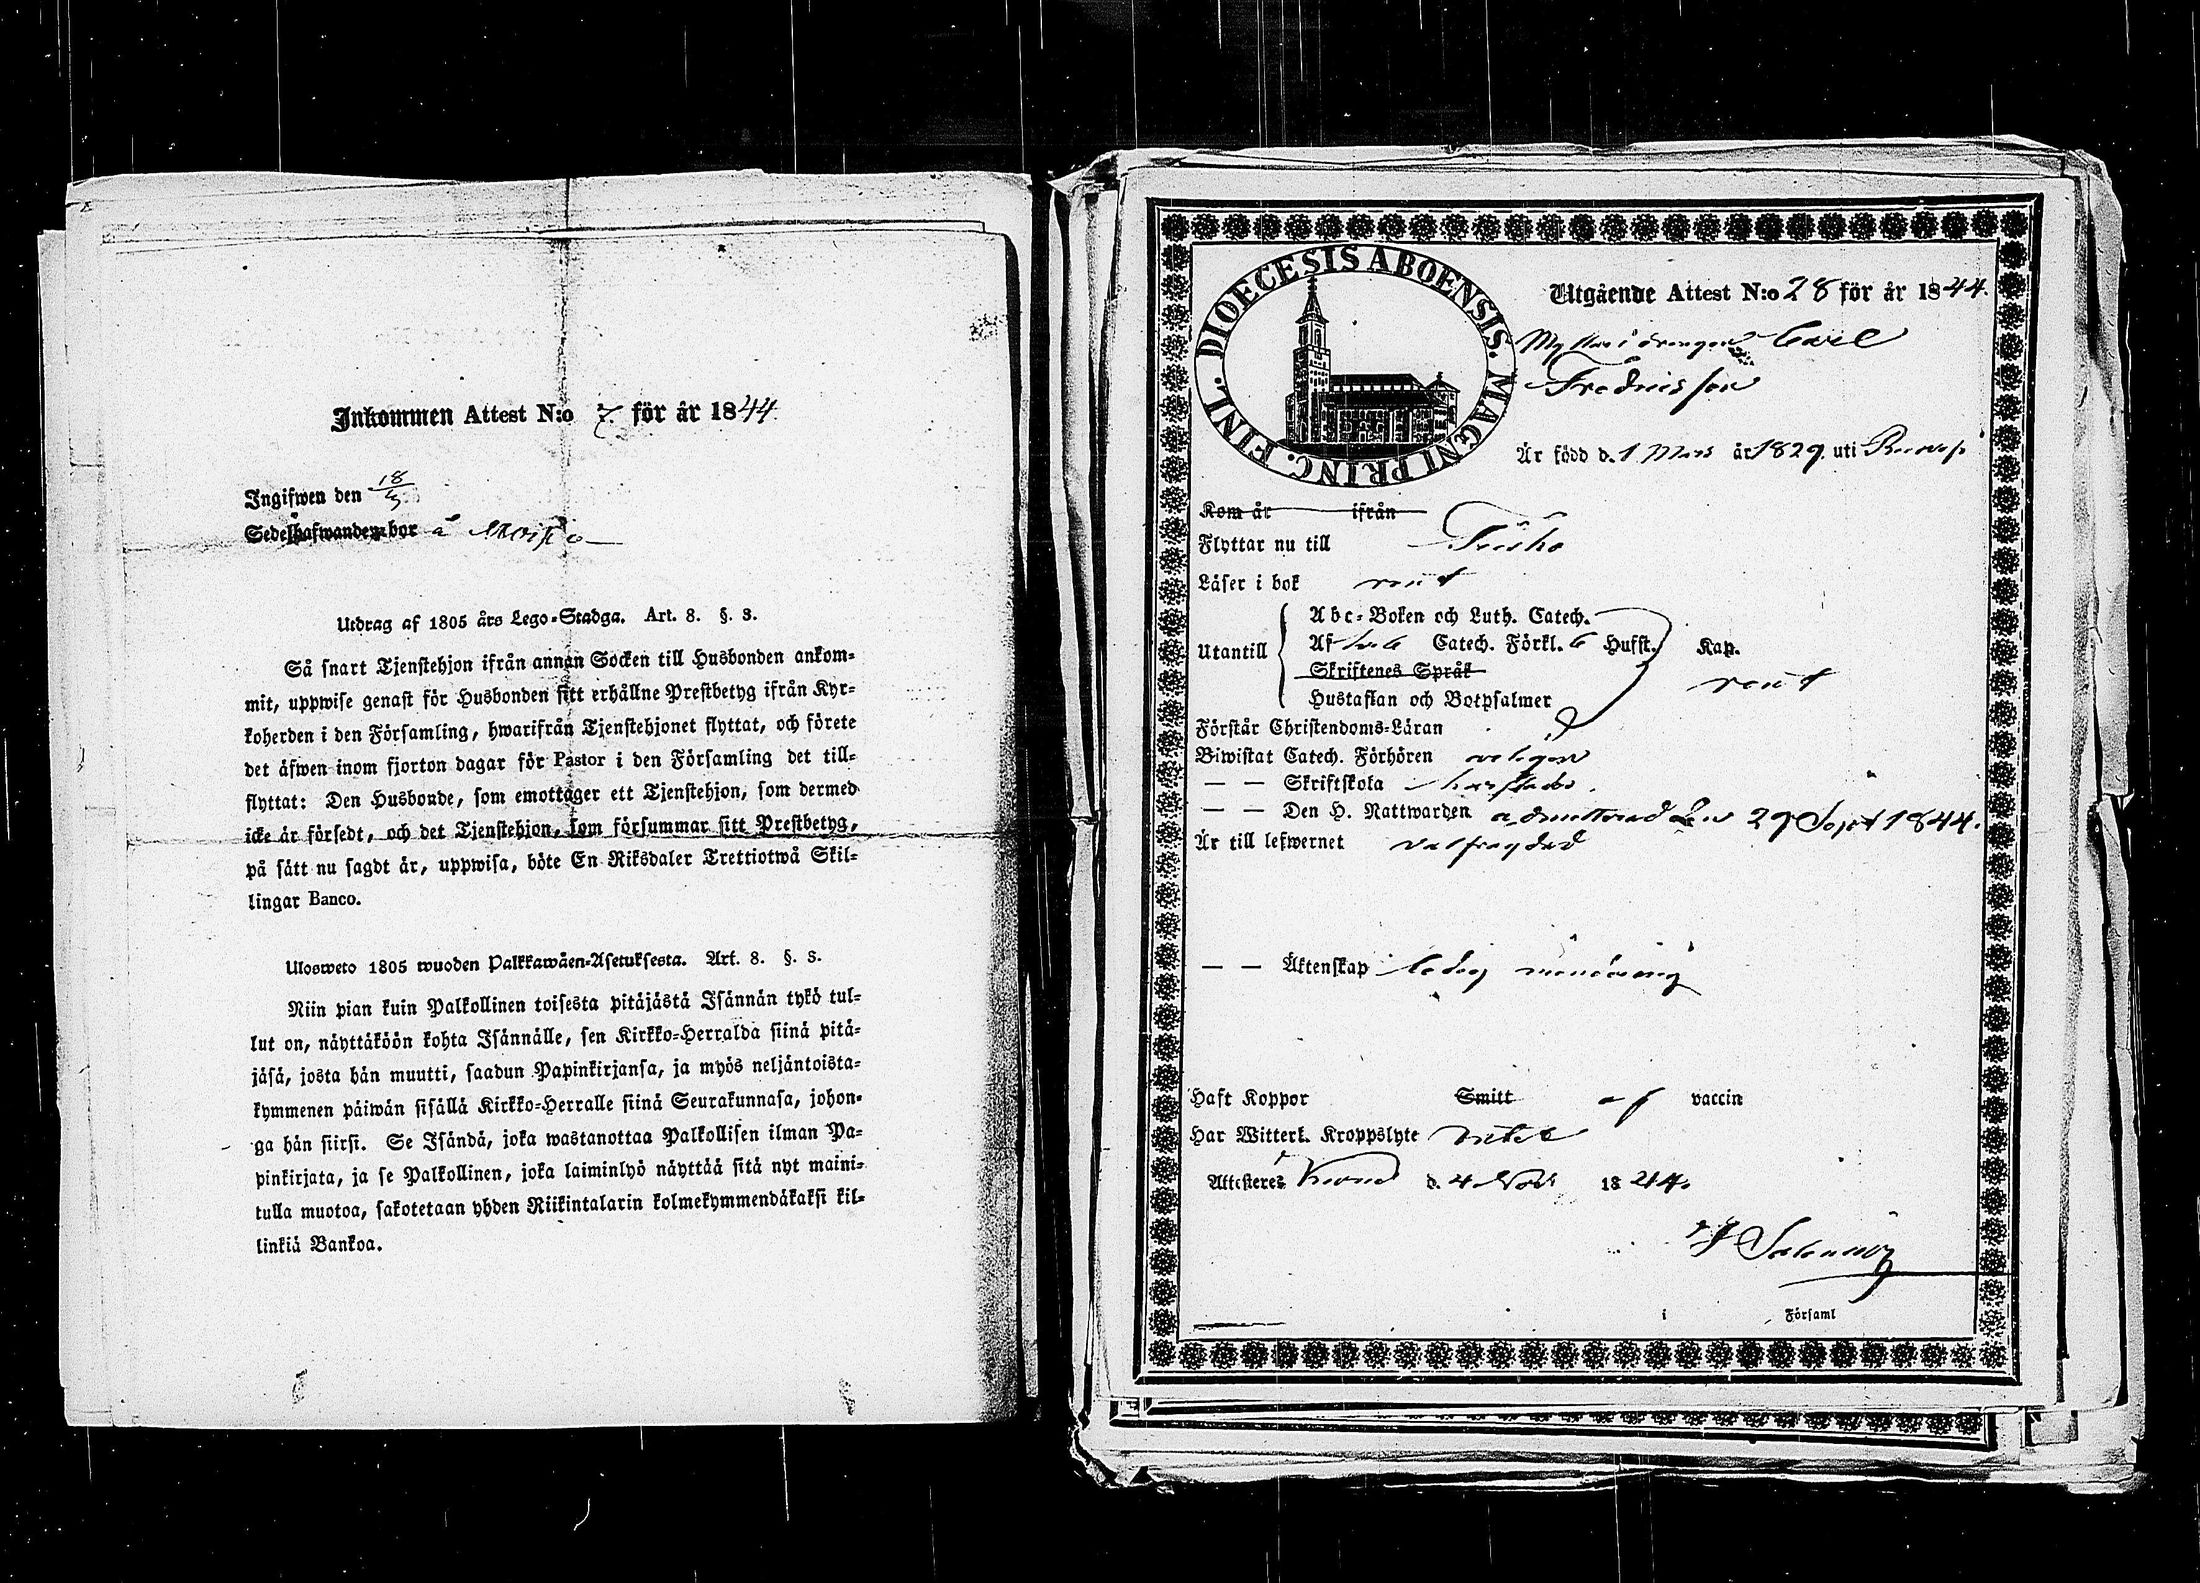 Inkommen Attest N:o 7. för år 1844.
Ingifwen den 18/
Sedelhafwanden bor å
Utdrag af 1805 års Lego-Stadga. Art. 8. §. 3.
Så snart Tjenstehjon ifrån annan Socken till Husbonden ankom-
mit, uppwise genast för Husbonden sitt erhållne Prestbetyg ifrån Kyr-
koherden i den Församling, hwarifrån Tjenstehjonet flyttat, och förete
det äfwen inom fjorton dagar för Pastor i den Församling det till-
flyttat: Den Husbonde, som emottager ett Tjenstehjon, som dermed
icke är försedt, och det Tjenstehjon, som försummar sitt Prestbetyg,
på sätt nu sagdt är, uppwisa, böte En Riksdaler Trettiotwå Skil-
lingar Banco.
Ulosweto 1805 wuoden Palkkawäen-Asetuksesta. Art. 8. §. 3.
Niin pian kuin Palkollinen toisesta pitäjästä Isännän tykö tul-
lut on, näyttäköön kohta Isännälle, sen Kirkko-Herralda siinä pitä-
jäsä, josta hän muutti, saadun Papinkirjansa, ja myös neljäntoista-
kymmenen päiwän sisällä Kirkko-Herralle siinä Seurakunnasa, johon-
ga hän siirsi. Se Isändä, joka wastanottaa Palkollisen ilman Pa-
pinkirjata, ja se Palkollinen, joka laiminlyö näyttää sitä nyt maini-
tulla muotoa, sakotetaan yhden Riikintalarin kolmekymmendäkaksi kil-
linkiä Bankoa.
DIOECESIS ABOENSIS. MAGNI PRINC. FINL.
Utgående Attest N:o 28 för år 1844.
Carl
Fredricsson
Är född d. 1 Mars år 1829. uti
Kom år ifrån
Flyttar nu till
Läser i bok rent
Utantill
Abc-Boken och Luth. Catech.
Af hela Catech. Förkl. 6 Hufst. Kap.
Skriftenes Språk
Hustaflan och Botpsalmer
rent
Förstår Christendoms-Läran
Biwistat Catech. Förhören
— — Skriftskola
— — Den H. Nattwarden admitterad den 29 Sept 1844.
Är till lefwernet välfrägdad
— — Äktenskap ledig
Haft Koppor Smitt af vaccin
Har Witterl. Kroppslyte intet
Attesteres d. 4 Nov. 1844.
i Församl